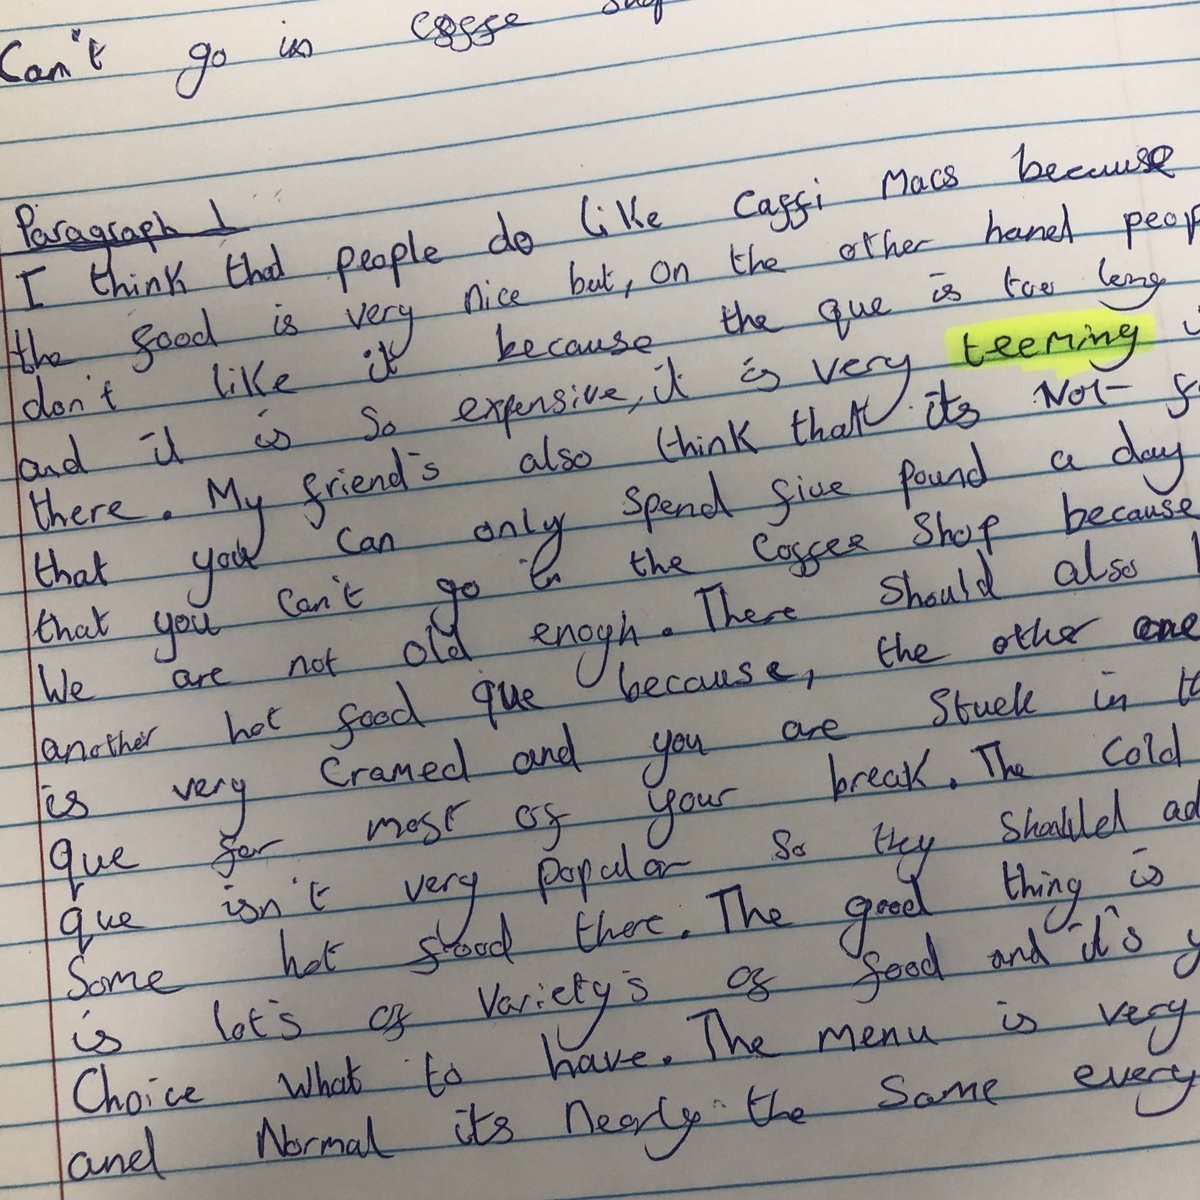 Can't go in coffe shop
Paragraph 1
I think that people do like Caffi Macs because
the food is very nice but, on the other hand peop
don't like it because the que is too long
and it is so expensive, it is very teeming
there. My friend's also think that its Not
that you can only spend five pound a day
that you can't go in the Coffee Shop because
We are not old enogh. There should also
another hot food que because, the other one
is very cramed and you are stuck in th
que for most of your break. The cold
que isn't very popular so they should ad
Some hot food there. The good thing is
is lot's of Variety's of food and it's y
Choice what to have. The menu is very
and Normal its nearly the same every